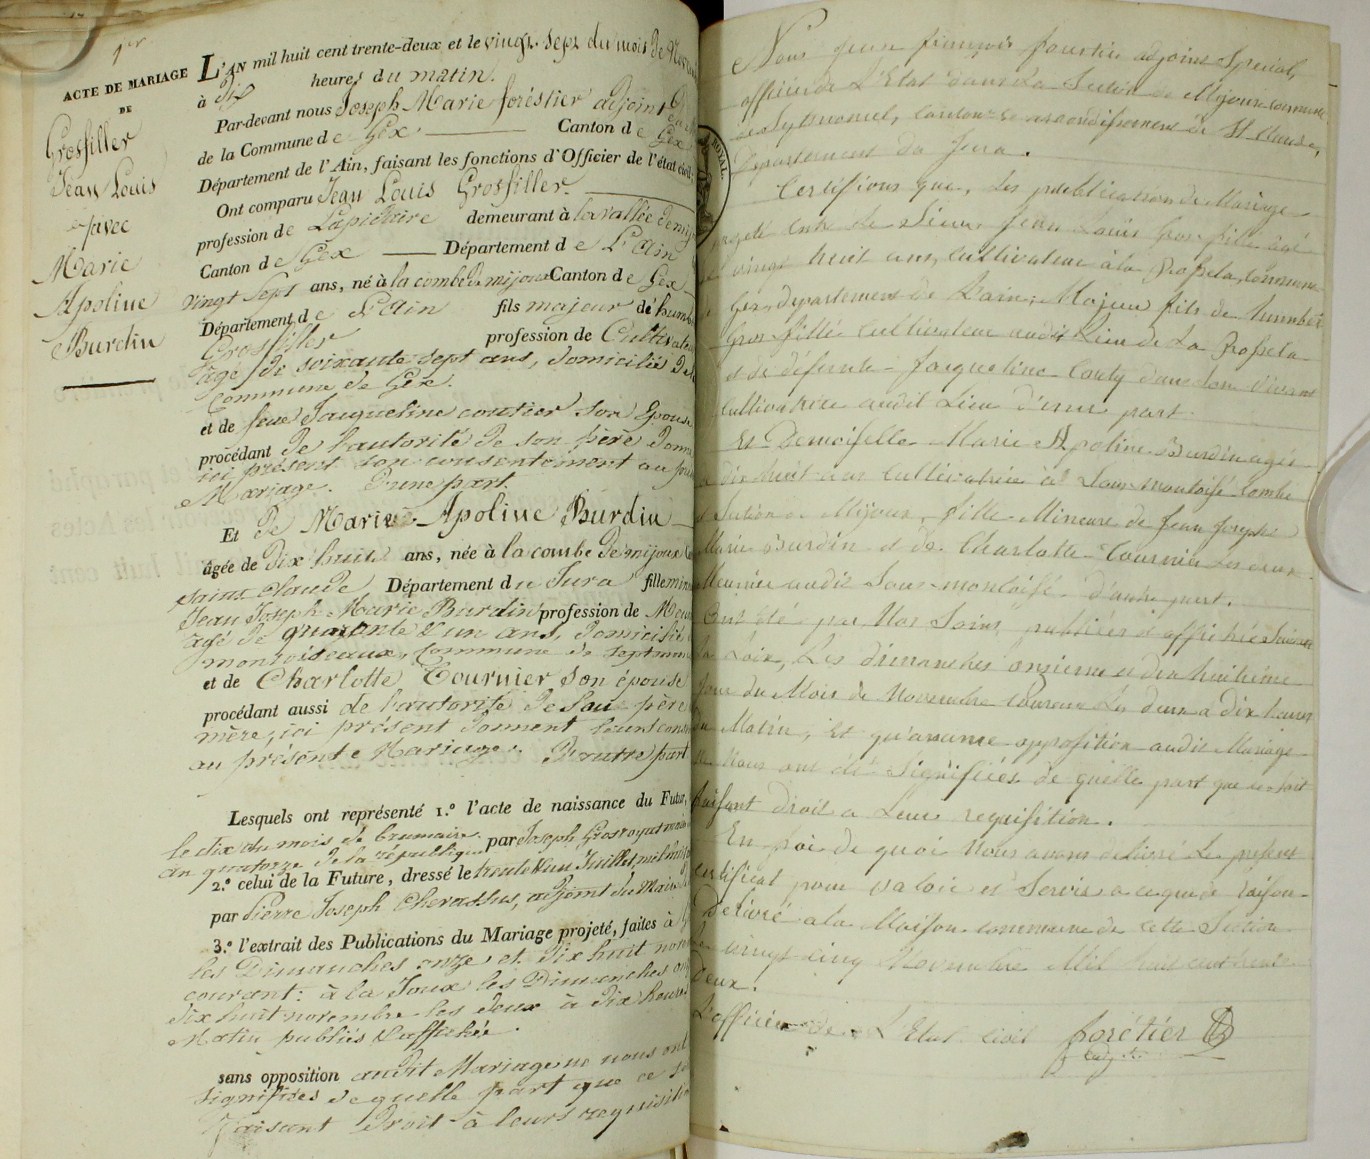 1er
ACTE DE MARIAGE
DE
Grosfiller
Jean Louis
avec
Marie
Apoline
Burdin
L'AN mil huit cent trente-deux et le vingt sept du mois de Novem
à dix heures du matin.
Par-devant nous Joseph Marie foréstier adjoint
de la Commune de Gex Canton de Gex
Département de l'Ain, faisant les fonctions d'Officier de l'état civil
Ont comparu Jean Louis Grosfiller.
profession de Lapidaire demeurant à la vallée de mij
Canton de Gex Département de L'ain
vingt sept ans, né à la combe de mijoux Canton de Gex
Département de l'ain fils majeur de humb
Grosfiller profession de Cultivate
âgé de soixante sept ans, domicilié de
Commune de Gex.
et de feue Jauqueline coutier son épouse
procédant de l'autorité de son père donn
ici présent son consentement au
Mariage. D'une part.
Et de Marie Apoline Burdin
âgée de dix huit ans, née à la combe de mijoux
saint claude Département du Jura fille min
Jean Joseph Marie Burdin profession de Meu
âgé de quarante & un ans, domicilié
montoiseaux, commune de septmon
et de Charlotte Tournier son épouse
procédant aussi de l'autorité de Sau père
mère, ici présent donnent leurs cons
au présente Mariage. D'autre part
Lesquels ont représenté 1.º l'acte de naissance du Futur,
le dix du mois de brumaire par Joseph Grosroyat
an quatorze de la république
2.º celui de la Future, dressé le trente & un Juillet mil hui
par Pierre Joseph Cherassus, adjoint du Maire
3.º l'extrait des Publications du Mariage projeté, faites à
les Dimanches onze et dix huit nov
courant: à la Joux les Dimanches on
dix huit novembre les deux à dix heures
Matin publiés & affichés.
sans opposition audit Mariage ne nous ont
signifiés de quelle part que ce s
Faisant Droit à leurs requisition
ROYAL.
Nous Jean françois foretier adjoint Special,
officier de L'Etat dans La Section de Mijoux commune
de Septmoncel, canton et arrondissement de St Claude,
Departement du Jura.
Certifions que, Les publications de Mariage
projeté entre le Sieur Jean Louis Gros fillé agé
de vingt huit ans, Cultivateur à la commune
Gex, departement de L'ain, Majeur fils de humbert
Gros fillé Cultivateur audit Lieu de La
et de défunte Jacqueline Couty dans son vivant
Cultivatrice audit Lieu d'une part.
Et Demoiselle Marie Apoline Burdin agée
dix huit ans Cultivatrice à Sous montoisé Combe
et Section de Mijoux, fille Mineure de Jean Joseph
Marie Burdin et de Charlotte Tournier
Meunier audit Sous-montoisé d'autre part.
Ont été par Nos Soins publiées et affichées Suivant
la Loix, Les dimanches onzieme et dix huitième
jour du Mois de Novembre Courant Les deux a dix heures
du Matin, Et qu'aucune opposition audit Mariage
ne Nous ont été Signifiés de quelle part que ce soit
faisant droit a Leur requisition.
En foi de quoi Nous avons délivré Le present
certificat pour valoir et Servir a ce que de raison.
Délivré a la Maison commune de cette Section
Le vingt cinq Novembre Mil huit cent trente
deux.
L'officier de L'Etat Civil forétier